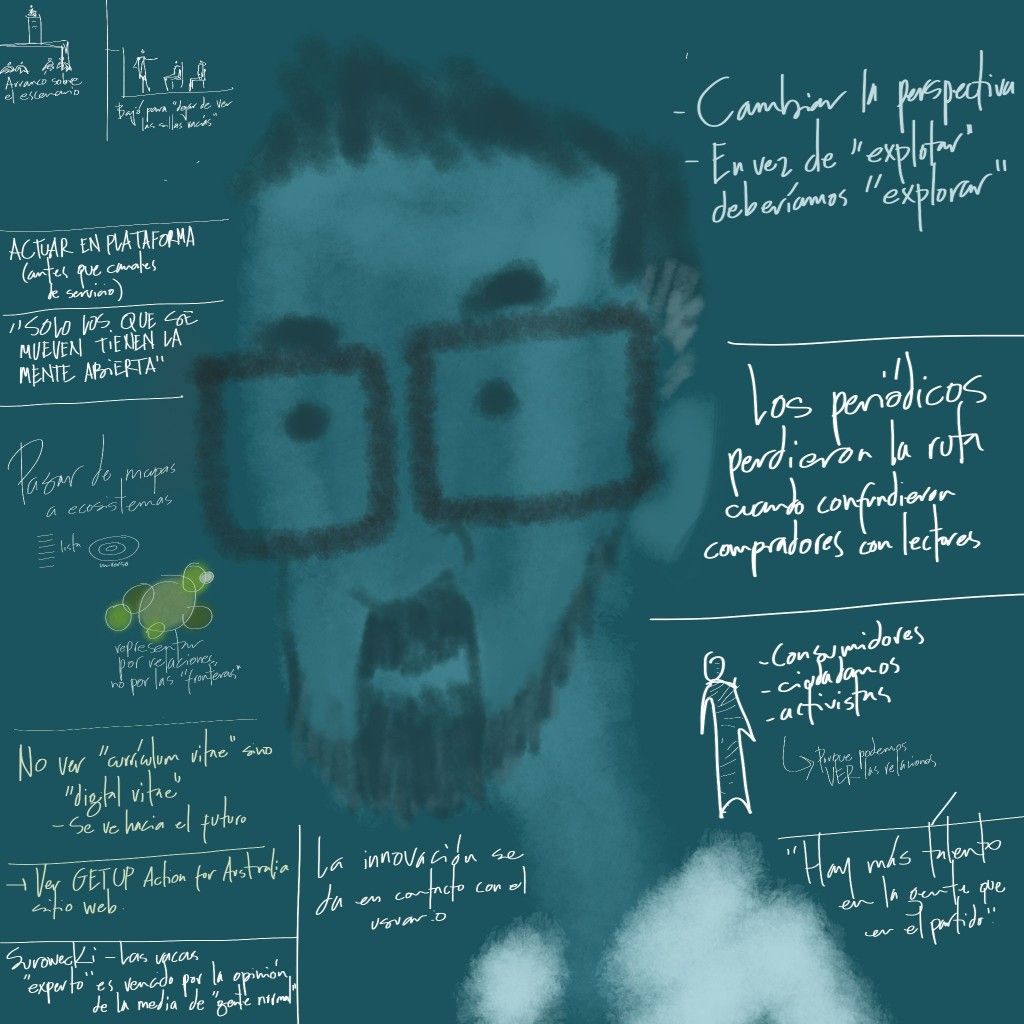 Arrancó sobre
el escenario
Bajó para "dejar de ver
las sillas vacías"
- Cambiar la perspectiva
- En vez de "explotar"
deberíamos "explorar"
ACTUAR EN PLATAFORMA
(antes que canales
de servicio)
"SOLO LOS QUE SE
MUEVEN TIENEN LA
MENTE ABIERTA"
Pasar de mapas
a ecosistemas
lista
universo
representar
por relaciones,
no por las "fronteras"
Los periódicos
perdieron la ruta
cuando confundieron
compradores con lectores
- Consumidores
- ciudadanos
- activistas
Porque podemos
VER las relaciones
No ver "currículum vitae" sino
"digital vitae"
- Se ve hacia el futuro
→ Ver GETUP Action for Australia
sitio web.
Surowecki - Las vacas
"experto" es vencido por la opinión
de la media de "gente normal"
La innovación se
da en contacto con el
usuario
"Hay más talento
en la gente que
en el partido"